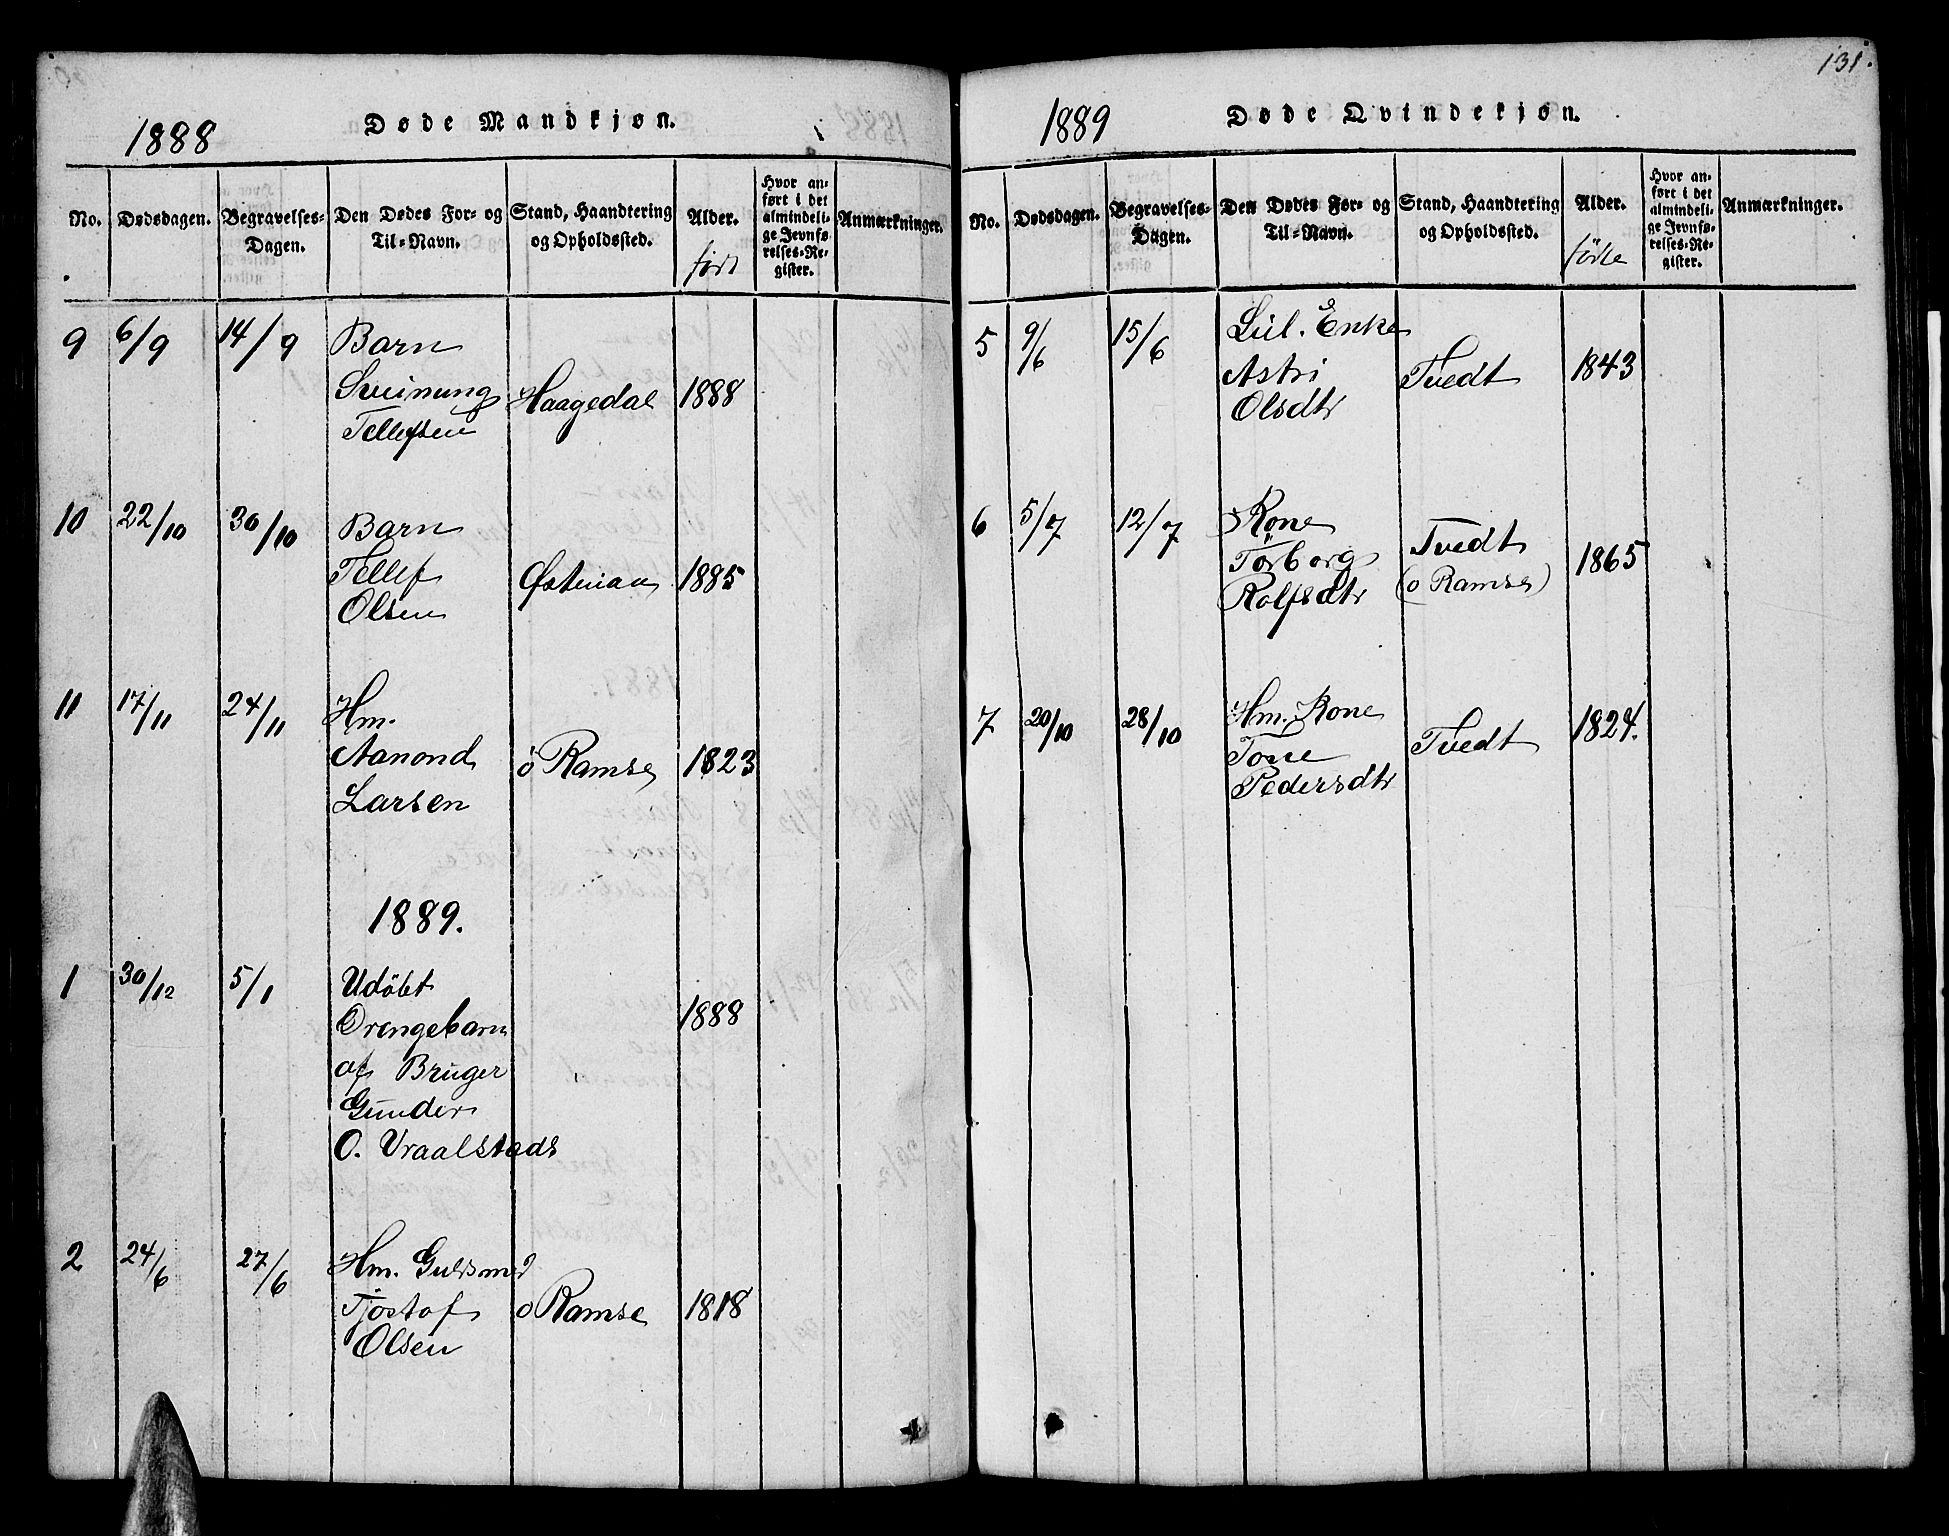 1888
Døde Mandkjøn.
No.
Dødsdagen.
Begravelses-
Dagen.
Den Dødes For- og
Til-Navn.
Stand, Haandtering
og Opholdssted.
Alder.
født
Hvor an-
ført i det
almindeli-
ge Jevnfø-
relses-Re-
gister.
Anmærkninger.
9 6/9 14/9 Barn
Sveinung Haagedal 1888
Tellefsen
10 22/10 30/10 Barn
Tellef Østenaa 1885
Olsen
11 17/11 24/11 Hm.
Aanond ö Ramse 1823
Larsen
1889.
1 30/12 5/1 Udöbt
Drengebarn 1888
af Bruger
Gunder
O. Vraalstads
2 24/6 27/6 Hm. Guldsmed
Tjostof o Ramse 1818
Olsen
131.
1889
Døde Qvindekjøn.
No.
Dødsdagen.
Begravelses-
Dagen.
Den Dødes For- og
Til-Navn.
Stand, Haandtering
og Opholdssted.
Alder.
födte
Hvor an-
ført i det
almindeli-
ge Jevnfø-
relses-Re-
gister.
Anmærkninger.
5 9/6 15/6 Enke
Astri Tvedt 1843
Olsdtr
6 5/7 12/7 Kone
Torborg Tvedt 1865
Rolfsdtr (o Ramse)
7 20/10 28/10 Hm. Kone
Tone Tvedt 1824.
Pedersdtr